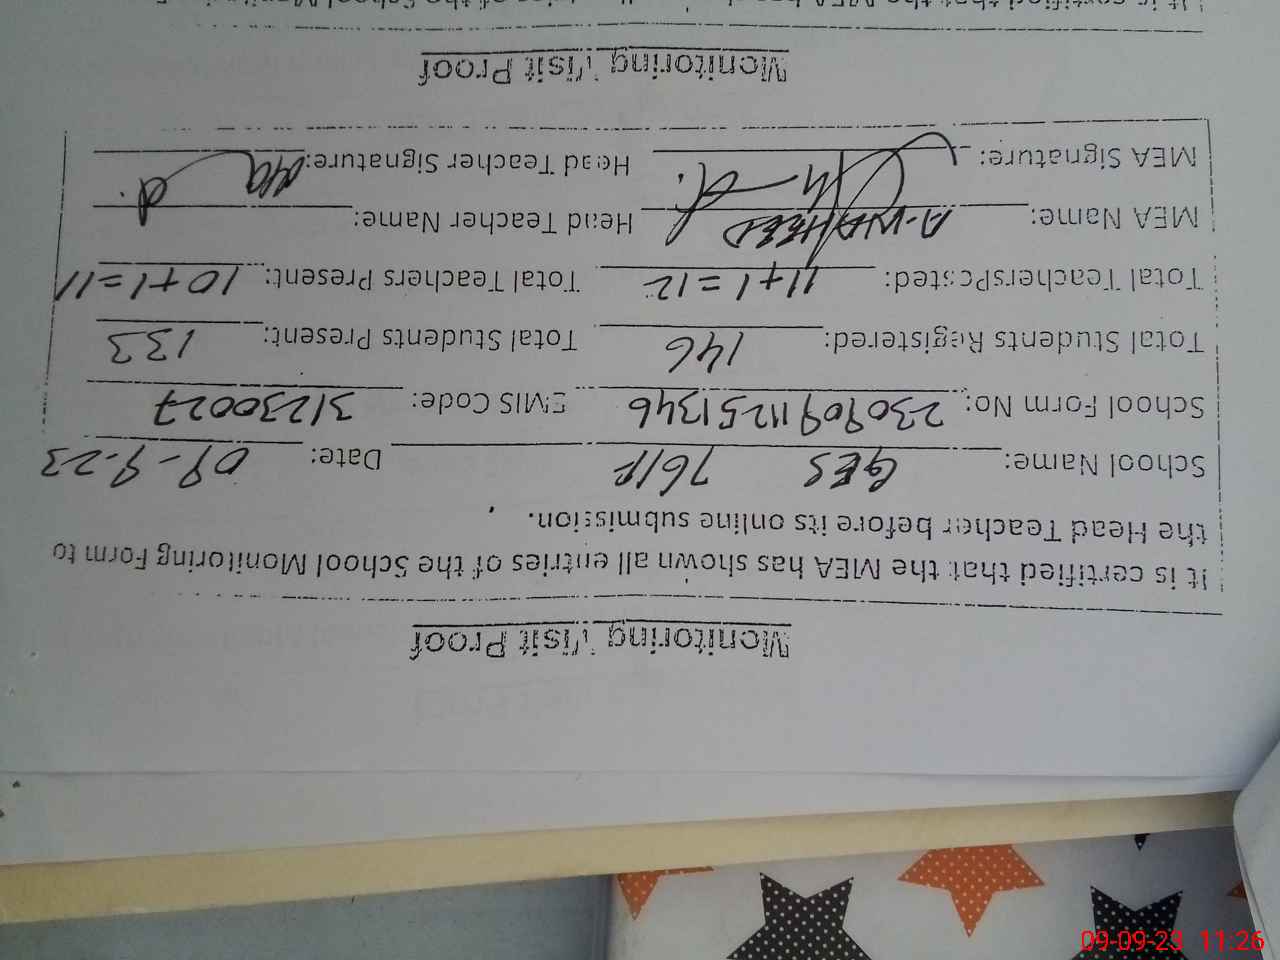 Monitoring Visit Proof
It is certified that the MEA has shown all entries of the School Monitoring Form to
the Head Teacher before its online submission.
School Name: GES 76/P Date: 09-9-23
School Form No: 23090911251346 EMIS Code: 31230027
Total Students Registered: 146 Total Students Present: 133
Total Teachers Posted: 11+1=12 Total Teachers Present: 10+1=11
MEA Name: A-WAHEED Head Teacher Name:
MEA Signature: Head Teacher Signature:
Monitoring Visit Proof
It is certified that the MEA has shown all entries of the School Monitoring
09-09-23 11:26